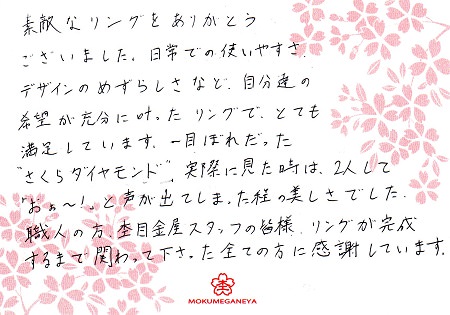 素敵なリングをありがとう
ございました。日常での使いやすさ、
デザインのめずらしさなど、自分達の
希望が充分に叶ったリングで、とても
満足しています。一目ぼれだった
"さくらダイヤモンド"、実際に見た時は、2人して
"おぉ〜!"と声が出てしまった程の美しさでした。
職人の方、杢目金屋スタッフの皆様、リングが完成
するまで関わって下さった全ての方に感謝しています。
MOKUMEGANEYA